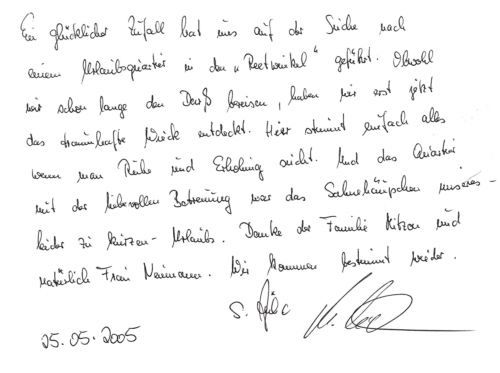 Ein glücklicher Zufall hat uns auf der Suche nach
einem Urlaubsquartier in den „Reetwinkel" geführt. Obwohl
wir schon lange den Darß bereisen, haben wir erst jetzt
das traumhafte Wieck entdeckt. Hier stimmt einfach alles
wenn man Ruhe und Erholung sucht. Und das Quartier
mit der liebevollen Betreuung war das Sahnehäupchen unseres -
leider zu kurzen - Urlaubs. Danke der Familie Kitzon und
natürlich Frau Neumann. Wir kommen bestimmt wieder.
S.
25.05.2005